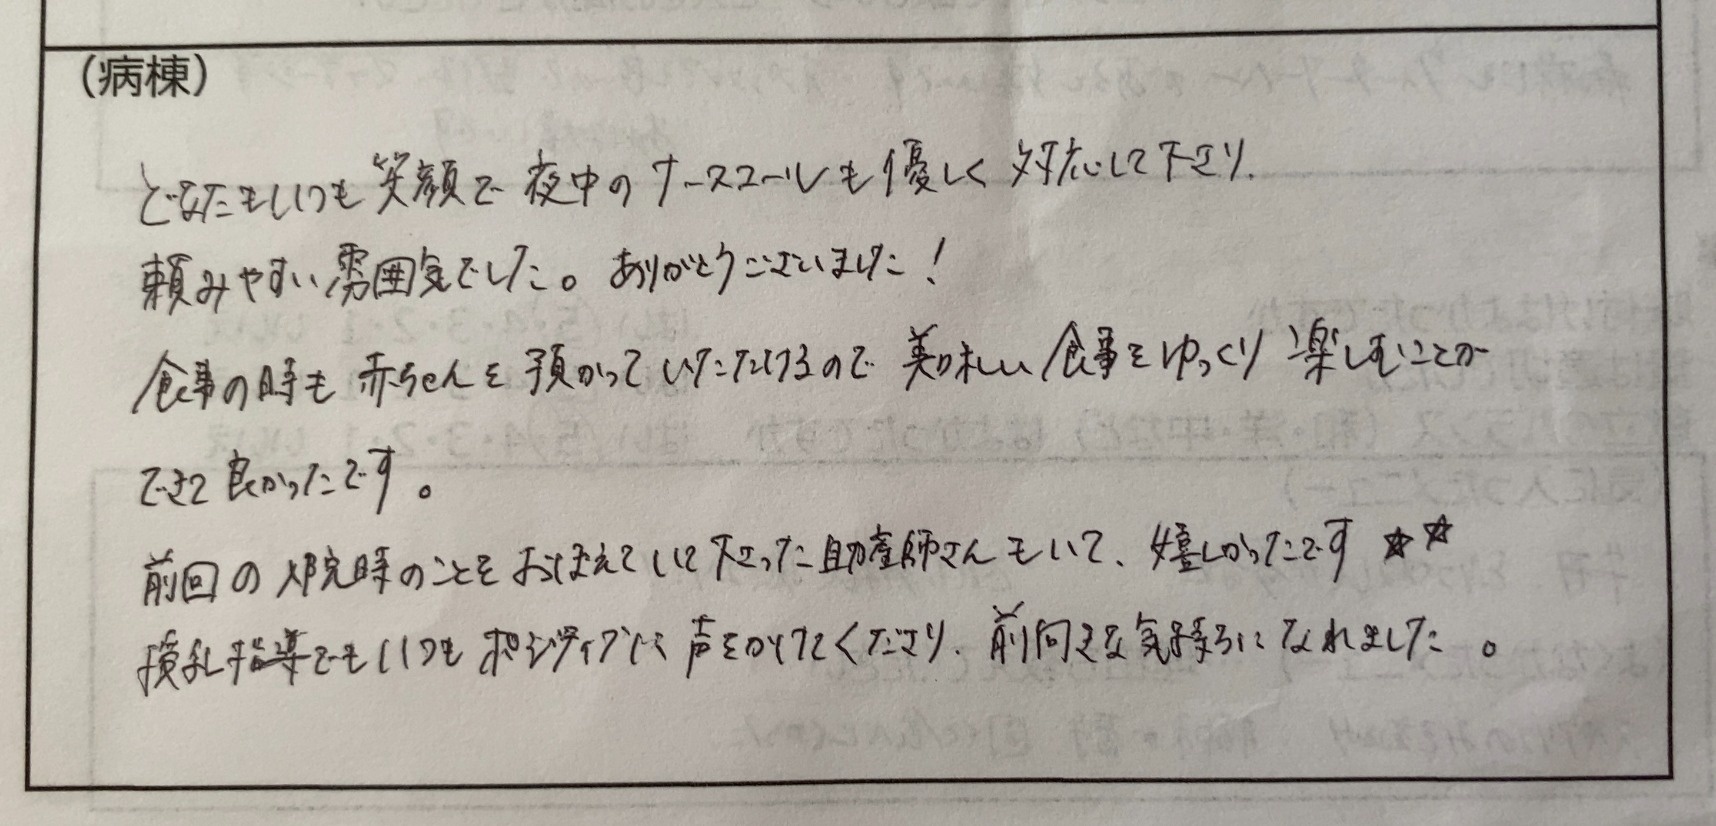 (病棟)
どなたもいつも笑顔で夜中のナースコールも優しく対応して下さり、
頼みやすい雰囲気でした。ありがとうございました！
食事の時も赤ちゃんを預かっていただけるので美味しい食事をゆっくり楽しむことが
できて良かったです。
前回の入院時のことをおぼえていて下さった助産師さんもいて、嬉しかったです☆☆
授乳指導でもいつもポジティブに声をかけてくださり、前向きな気持ちになれました。